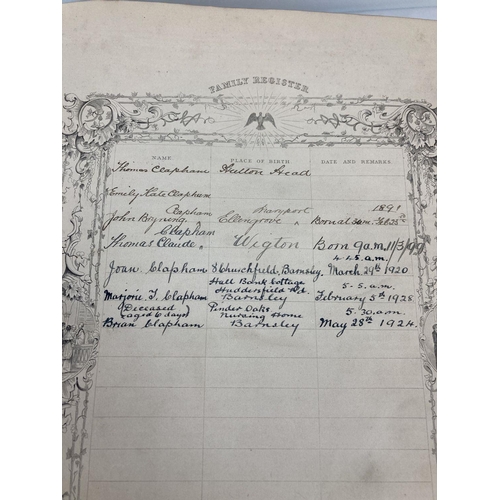 FAMILY REGISTER
NAME PLACE OF BIRTH DATE AND REMARKS
Thomas Clapham Hutton Head
Emily Kate Clapham
Clapham Maryport 1891
John Byning " Ellengrove " Born at 3am Feb 25th
Clapham
Thomas Claude " Wigton Born 9 a.m. 11/3/97
4.45.a.m.
Joan. Clapham 8 Churchfield, Barnsley March 29th 1920
Hall Bank Cottage 5-5.a.m.
Huddersfield Rd.
Marjorie J. Clapham Barnsley February 5th 1925
(Deceased Pinder Oaks 5.30.a.m.
aged 6 days) Nursing Home
Brian Clapham Barnsley May 28th 1924.